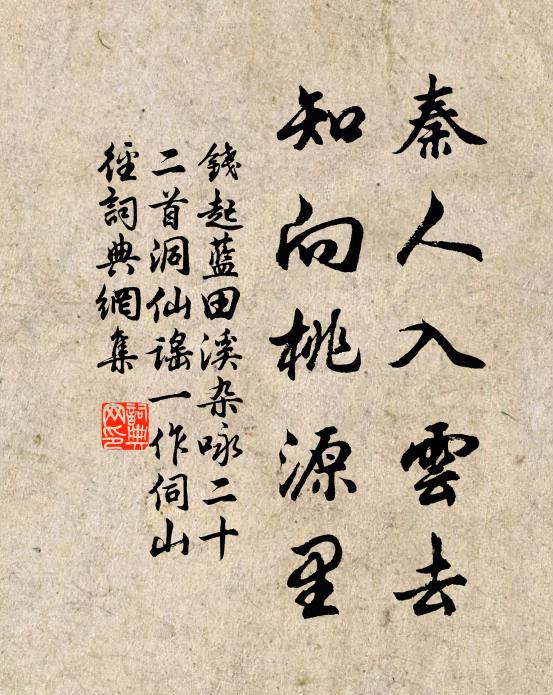 秦人入雲去
知向桃源里
錢起藍田溪杂咏二十
二首洞仙謠一作伺山
徑詞典網集
詞典
网印